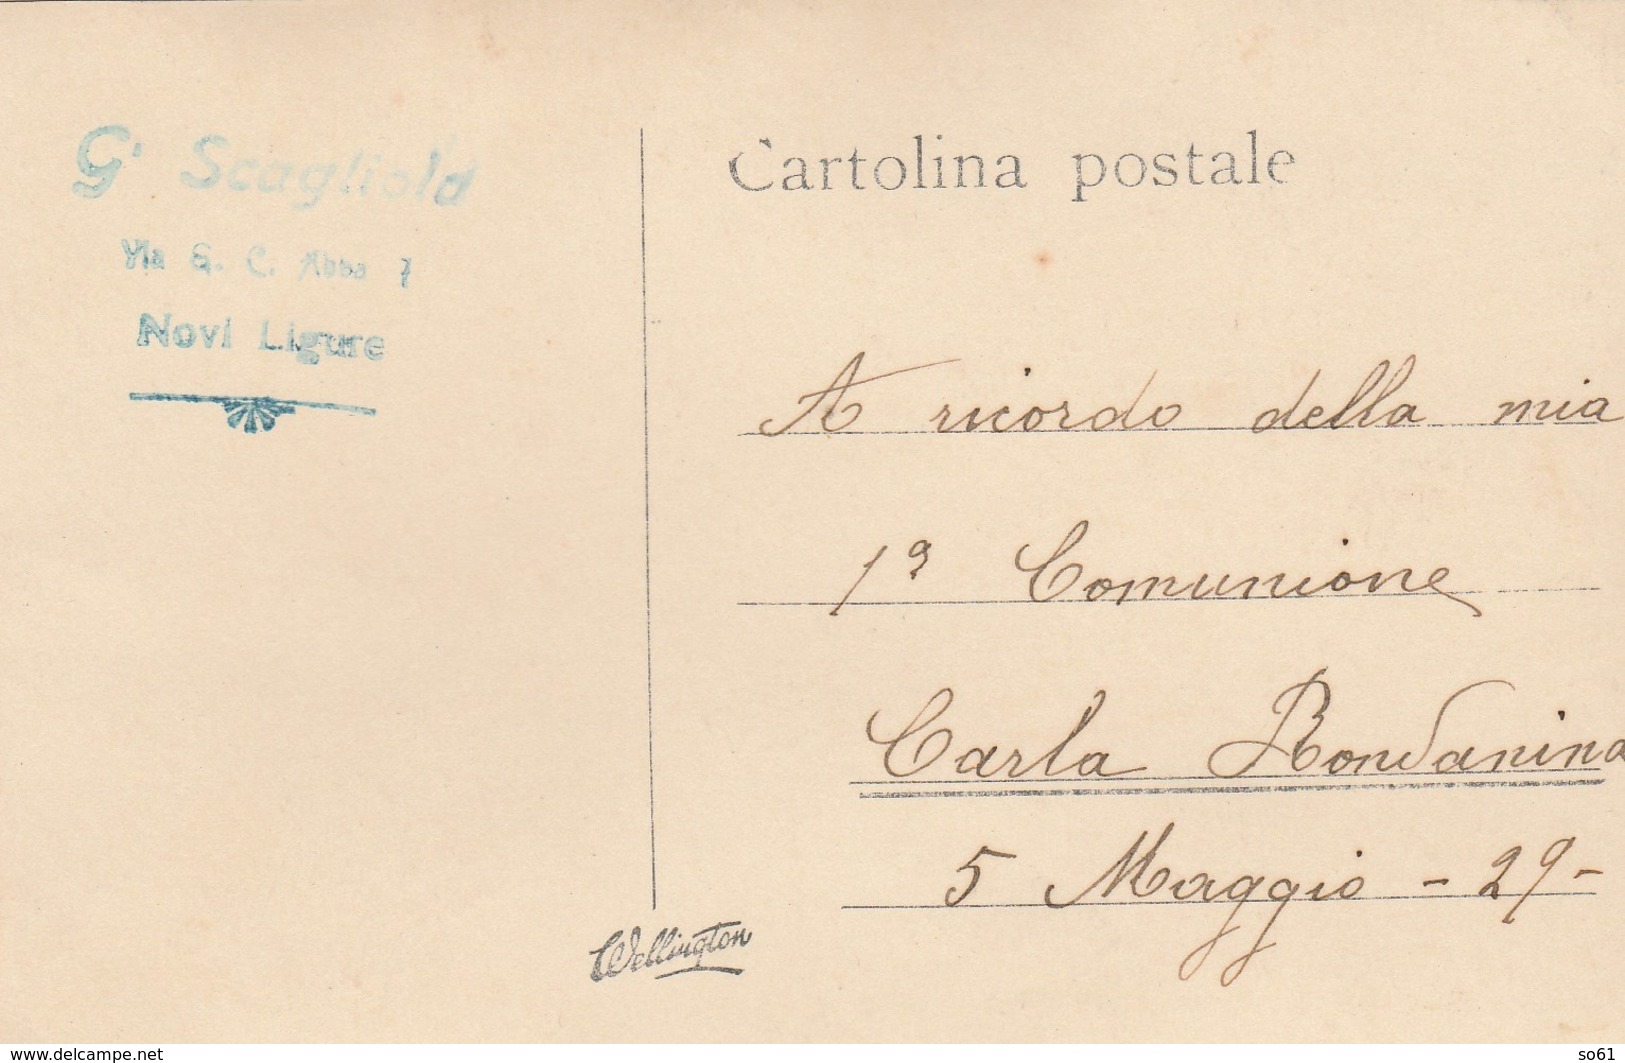 G. Scagliola
Via G. C. Abba 7
Novi Ligure
Cartolina postale
A ricordo della mia
1ª Comunione
Carla Rondanina
5 Maggio - 29-
Wellington
www.delcampe.net
so61